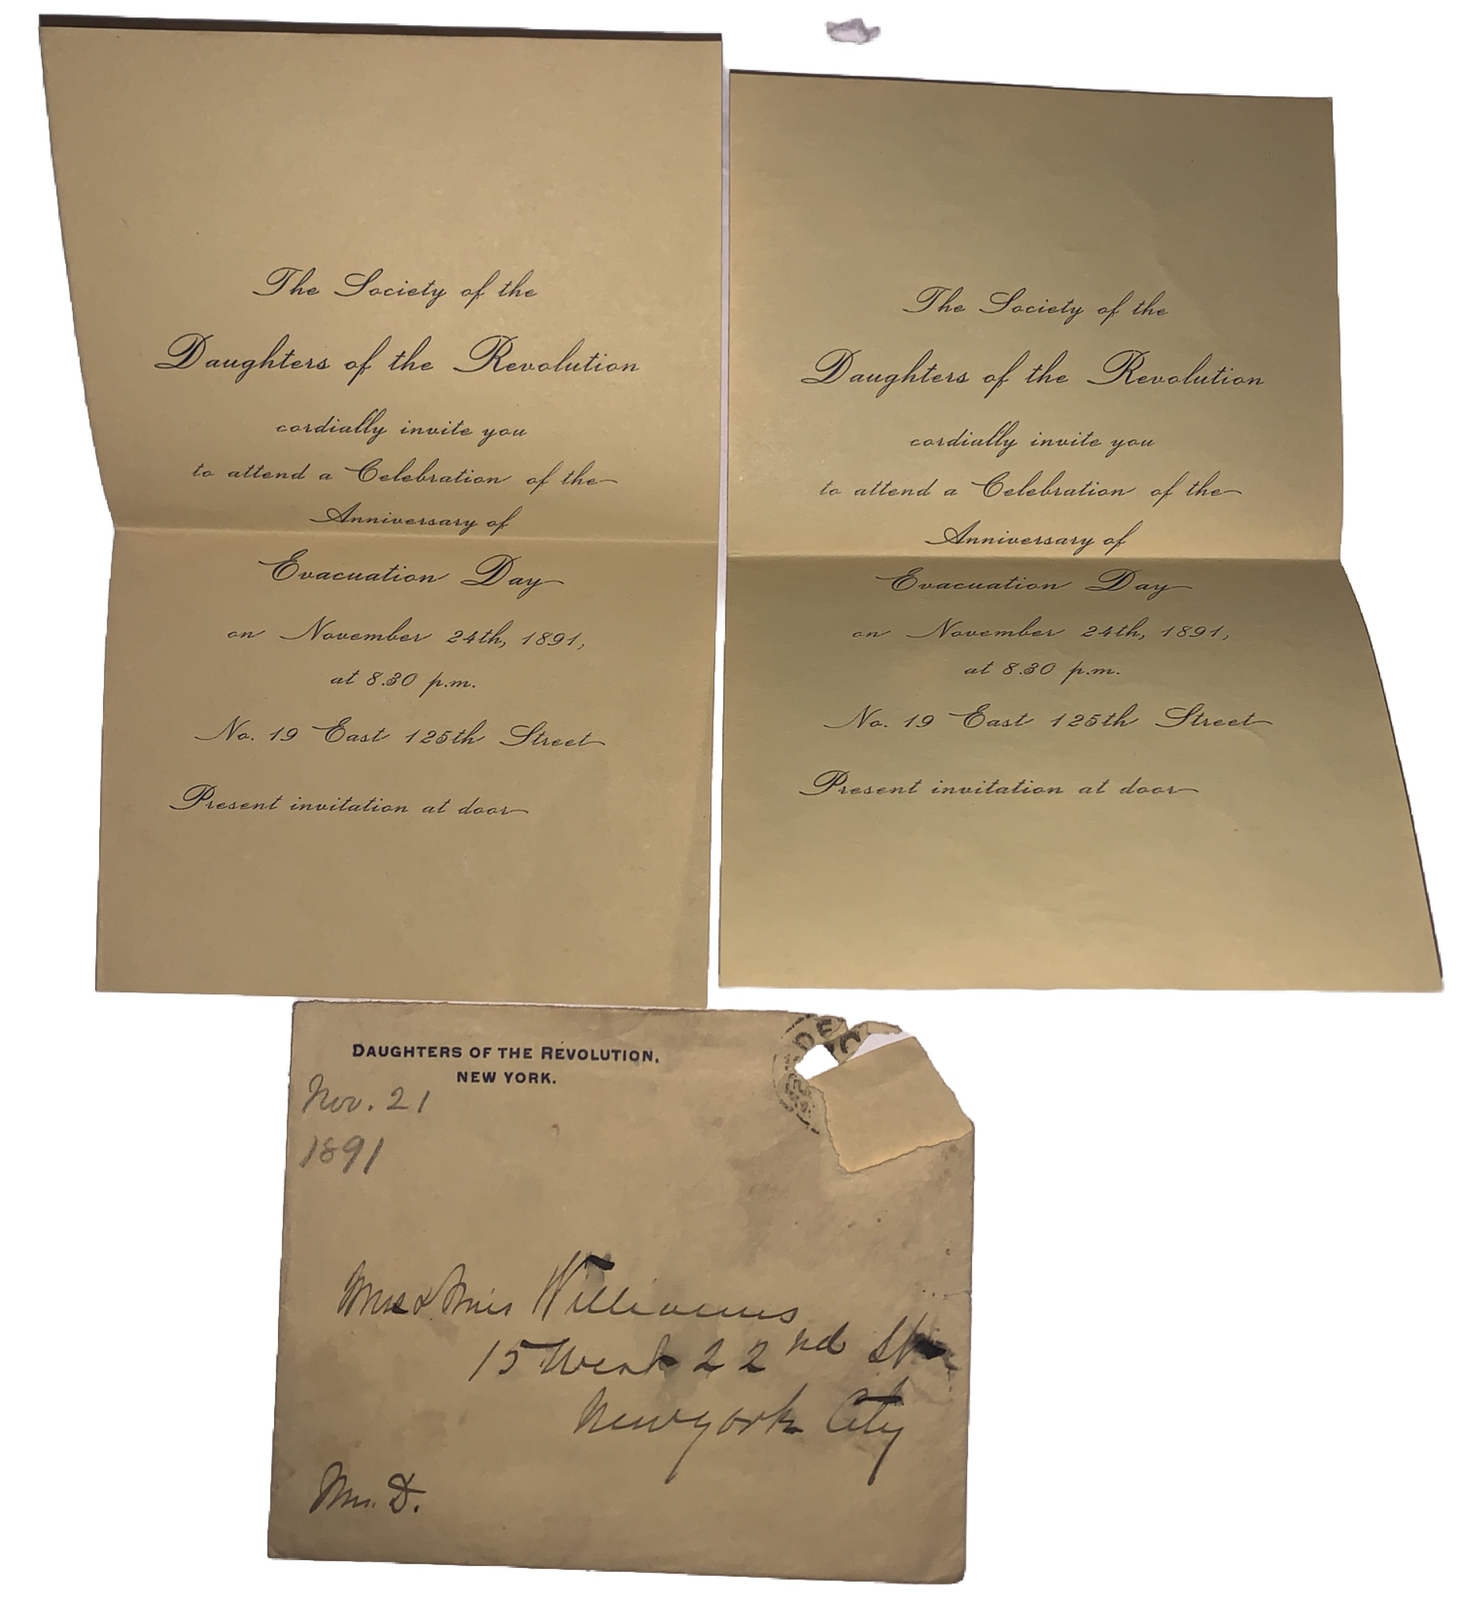 The Society of the
Daughters of the Revolution
cordially invite you
to attend a Celebration of the
Anniversary of
Evacuation Day
on November 24th, 1891,
at 8.30 p.m.
No. 19 East 125th Street
Present invitation at door
The Society of the
Daughters of the Revolution
cordially invite you
to attend a Celebration of the
Anniversary of
Evacuation Day
on November 24th, 1891,
at 8.30 p.m.
No. 19 East 125th Street
Present invitation at door
DAUGHTERS OF THE REVOLUTION,
NEW YORK.
Nov. 21
1891
& Miss Williams
15 West 22nd St
New york City